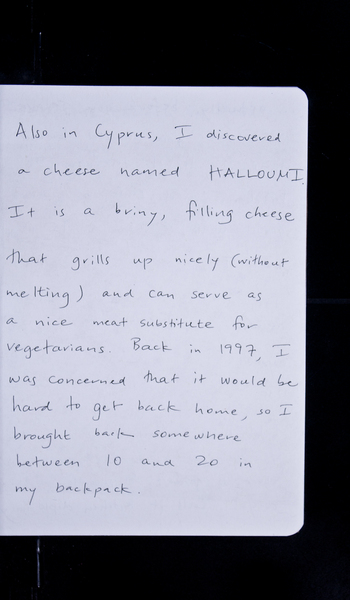 Also in Cyprus, I discovered
a cheese named HALLOUMI.
It is a briny, filling cheese
that grills up nicely (without
melting) and can serve as
a nice meat substitute for
vegetarians. Back in 1997, I
was concerned that it would be
hard to get back home, so I
brought back somewhere
between 10 and 20 in
my backpack.